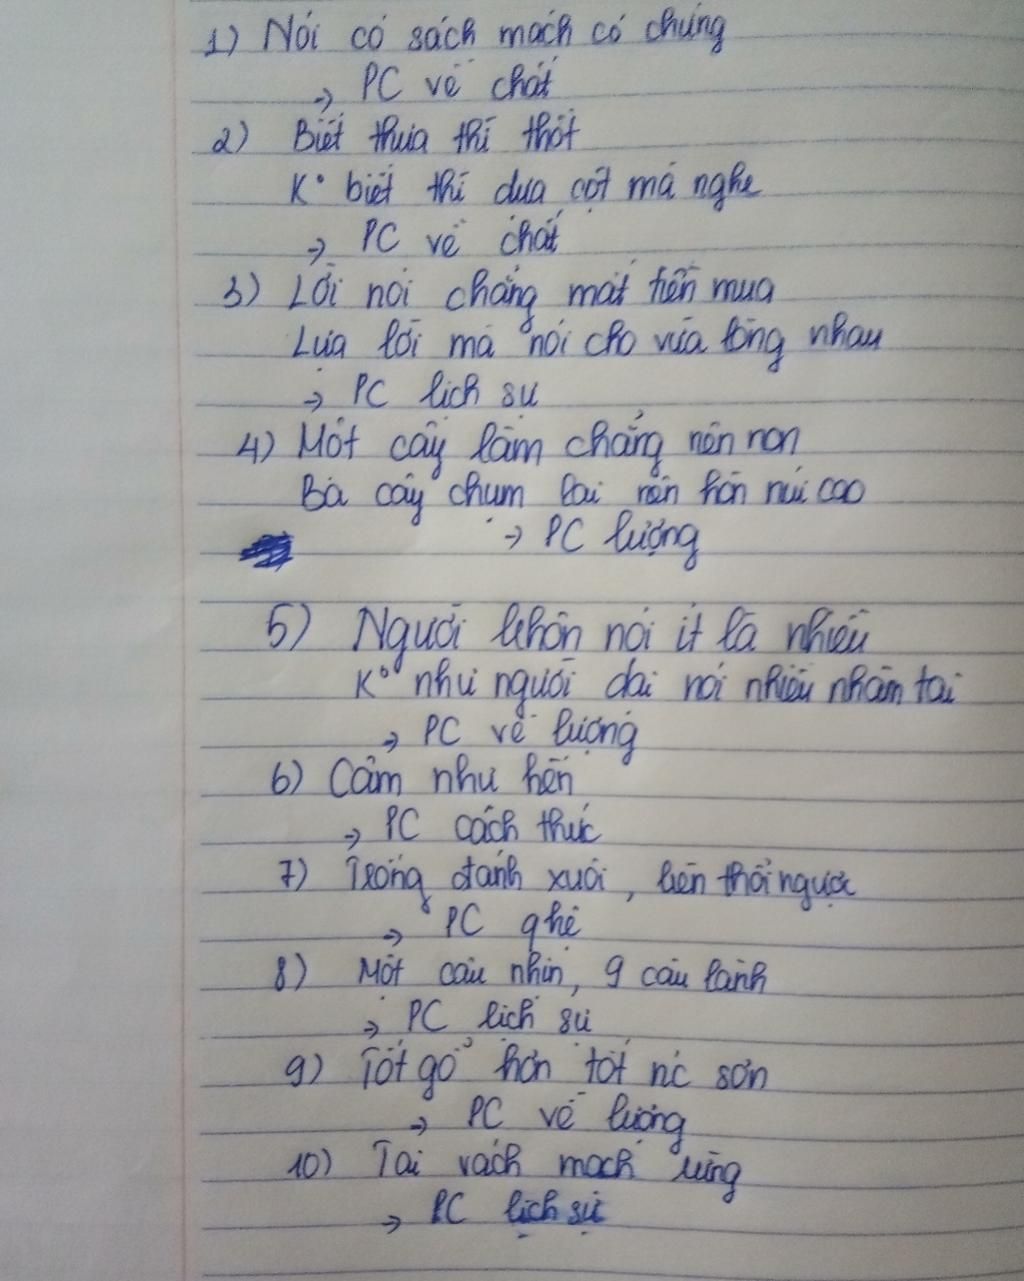 1) Nói có sách mách có chứng
→ PC về chất
2) Biết thưa thì thốt
K° biết thì dựa cột mà nghe
→ PC về chất
3) Lời nói chẳng mất tiền mua
Lựa lời mà nói cho vừa lòng nhau
→ PC lịch sự
4) Một cây làm chẳng nên non
Ba cây chụm lại nên hòn núi cao
→ PC lượng
5) Người khôn nói ít là nhiều
K° như người dại nói nhiều nhàm tai
→ PC về lượng
6) Câm như hến
→ PC cách thức
7) Trống đánh xuôi, kèn thổi ngược
→ PC qhệ
8) Một câu nhịn, 9 câu lành
→ PC lịch sự
9) Tốt gỗ hơn tốt nc sơn
→ PC về lượng
10) Tai vách mạch rừng
→ PC lịch sự